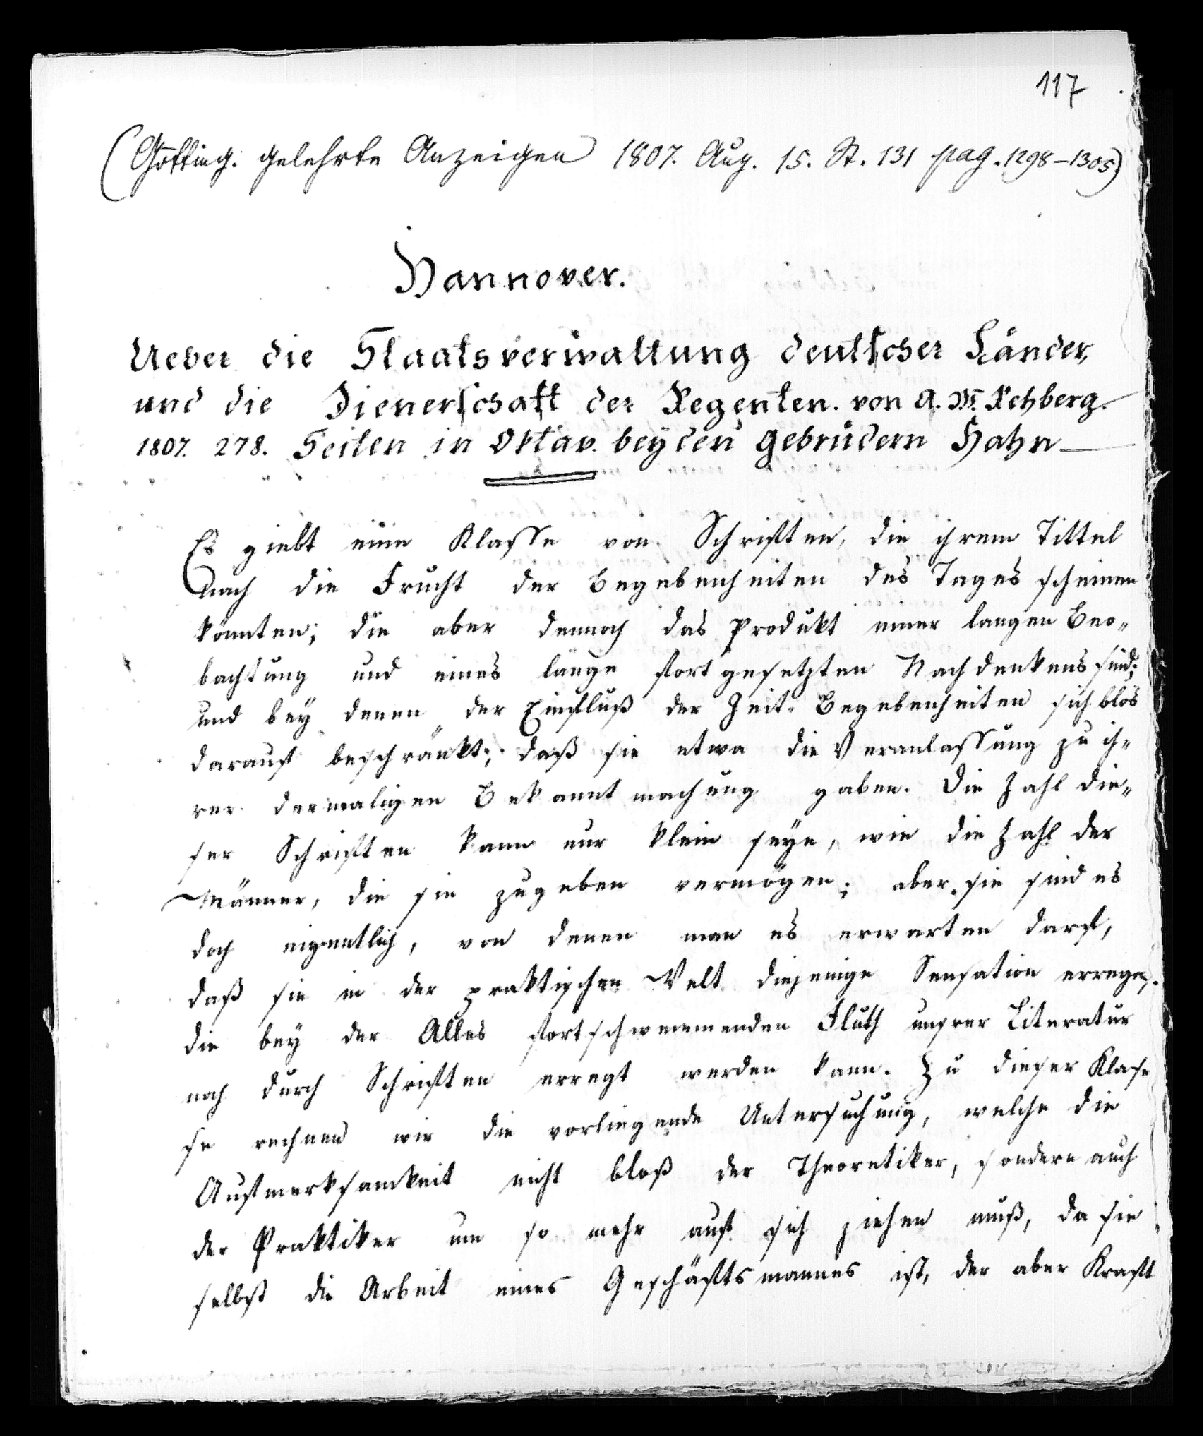 117
(Götting. gelehrte Anzeigen 1807. Aug. 15. St. 131 pag. 1298-1305)
Hannover.
Ueber die Staatsverwaltung deutscher Länder,
und die Dienerschaft der Regenten. von A. W. Rehberg.
1807. 278. Seiten in Oktav. bey den Gebrüdern Hahn
Es giebt eine Klasse von Schriften, die ihrem Tittel
nach die Frucht der Begebenheiten des Tages scheinen
könnten; die aber dennoch das Produkt einer langen Beo„
bachtung und eines lange fortgesetzten Nachdenkens sind;
und bey denen der Einfluß der Zeit. Begebenheiten sich blos
darauf beschränkt; daß sie etwa die Veranlassung zu ih„
rer dermaligen Bekanntmachung gaben. Die Zahl die„
ser Schriften kann nur klein seyn, wie die Zahl der
Männer, die sie zugeben vermögen; aber sie sind es
doch eigentlich, von denen man es erwarten darf,
daß sie in der praktischen Welt diejenige Sensation erregen,
die bey der Alles fortschwemmenden Fluth unsrer Literatur
noch durch Schriften erregt werden kann. Zu dieser Klas„
se rechnen wir die vorliegende Untersuchung, welche die
Aufmerksamkeit nicht bloß der Theoretiker, sondern auch
der Praktiker um so mehr auf sich ziehen muß, da sie
selbst die Arbeit eines Geschäftsmannes ist, der aber Kraft